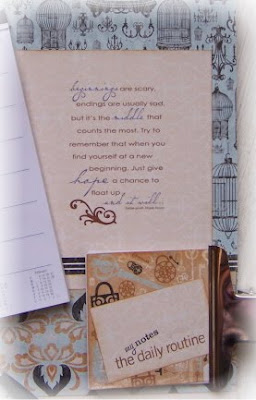 beginnings are scary,
endings are usually sad,
but it's the middle that
counts the most. Try to
remember that when you
find yourself at a new
beginning. Just give
hope a chance to
float up
and it will...
my notes
the daily routine